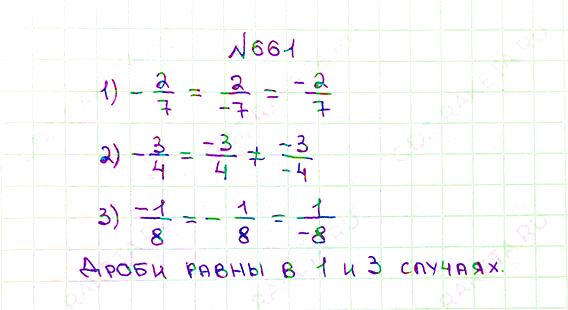 №661
1) -2/7 = 2/-7 = -2/7
2) -3/4 = -3/4 ≠ -3/-4
3) -1/8 = -1/8 = 1/-8
Дроби равны в 1 и 3 случаях.